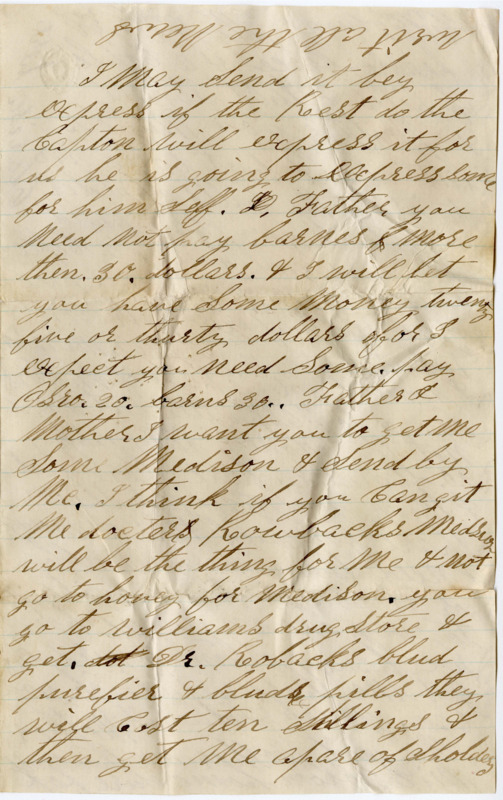 writ all the News
I may send it bey
express if the Rest do the
Capton will express it for
us he is going to express some
for him self. Father you
need not pay barnes more
then. 30. dollars. & I will let
you have some money tweny
five or thurty dollars for I
expect you need some. pay
20. barns 30.. Father &
Mother I want you to get me
some Medison & send by
Me. I think if you Can git
me docters Rowbacks Medison
will be the thing for me & not
go to honey for Medison. you
go to williams drug store &
get. Dr. Robacks blud
purefier & blud pills they
will cost ten shillings &
then get me apare of sholder